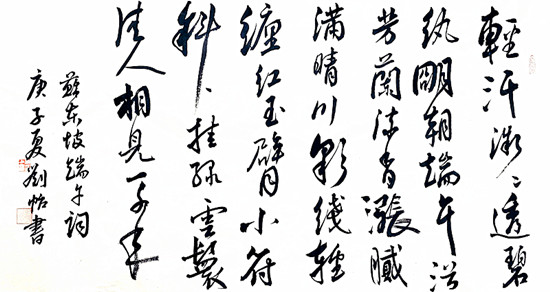 輕汗微〻透碧
紈明朝端午浴
芳蘭流香漲膩
滿晴川彩綫輕
纏紅玉臂小符
斜〻挂綠雲鬟
佳人相見一千年
蘇東坡端午詞
庚子夏劉書